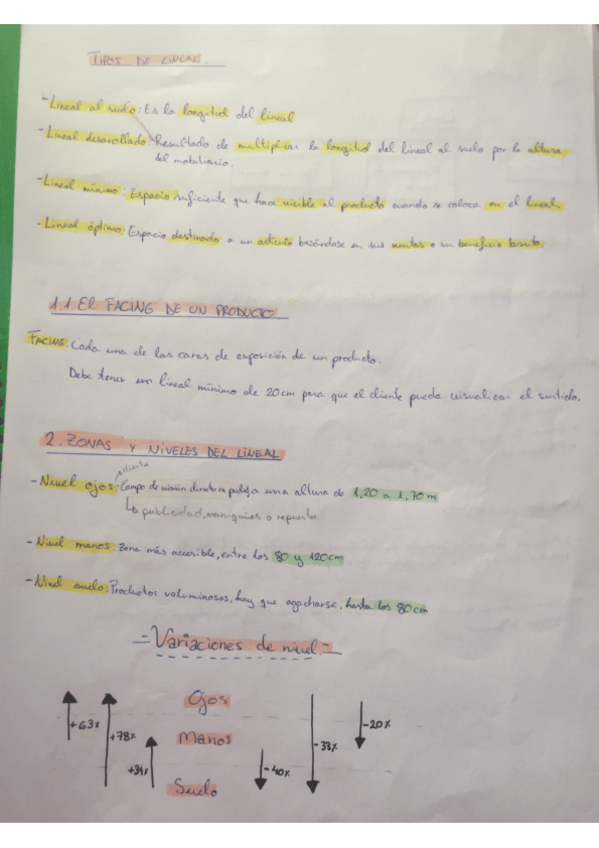 TIPOS DE LINEAL
- Lineal al suelo: Es la longitud del lineal
- Lineal desarollado: Resultado de multiplicar la longitud del lineal al suelo por la altura
del mobiliario.
- Lineal mínimo: Espacio suficiente que hace visible al producto cuando se coloca en el lineal.
- Lineal óptimo: Espacio destinado a un artículo basándose en sus ventas o su beneficio bruto.
1.1. El FACING DE UN PRODUCTO
FACING: Cada una de las caras de exposición de un producto.
Debe tener un lineal mínimo de 20cm para que el cliente pueda visualizar el surtido.
2. ZONAS Y NIVELES DEL LINEAL
cliente
- Nivel ojos: Campo de visión directa a una altura de 1,20 a 1,70 m
↳ publicidad, maniquíes o repuestos
- Nivel manos: Zona más accesible, entre los 80 y 120cm
- Nivel suelo: Productos voluminosos, hay que agacharse, hasta los 80cm
- Variaciones de nivel. -
Ojos
+63% -20%
+78% Manos -33%
+34% -40%
Suelo